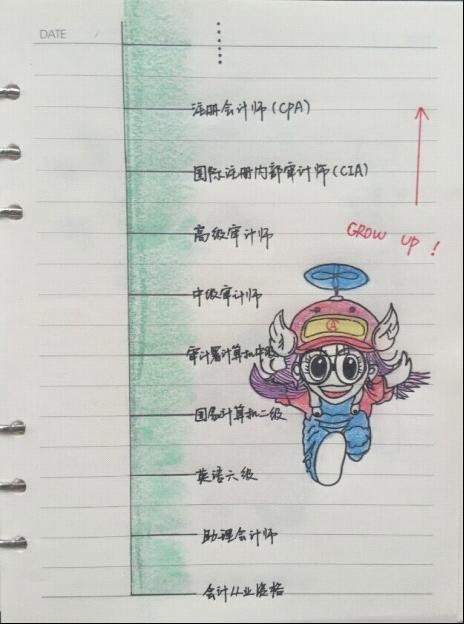 DATE
注册会计师(CPA)
国际注册内部审计师(CIA)
高级审计师
GROW UP !
中级审计师
A
审计署计算机中级
国家计算机二级
英语六级
助理会计师
会计从业资格